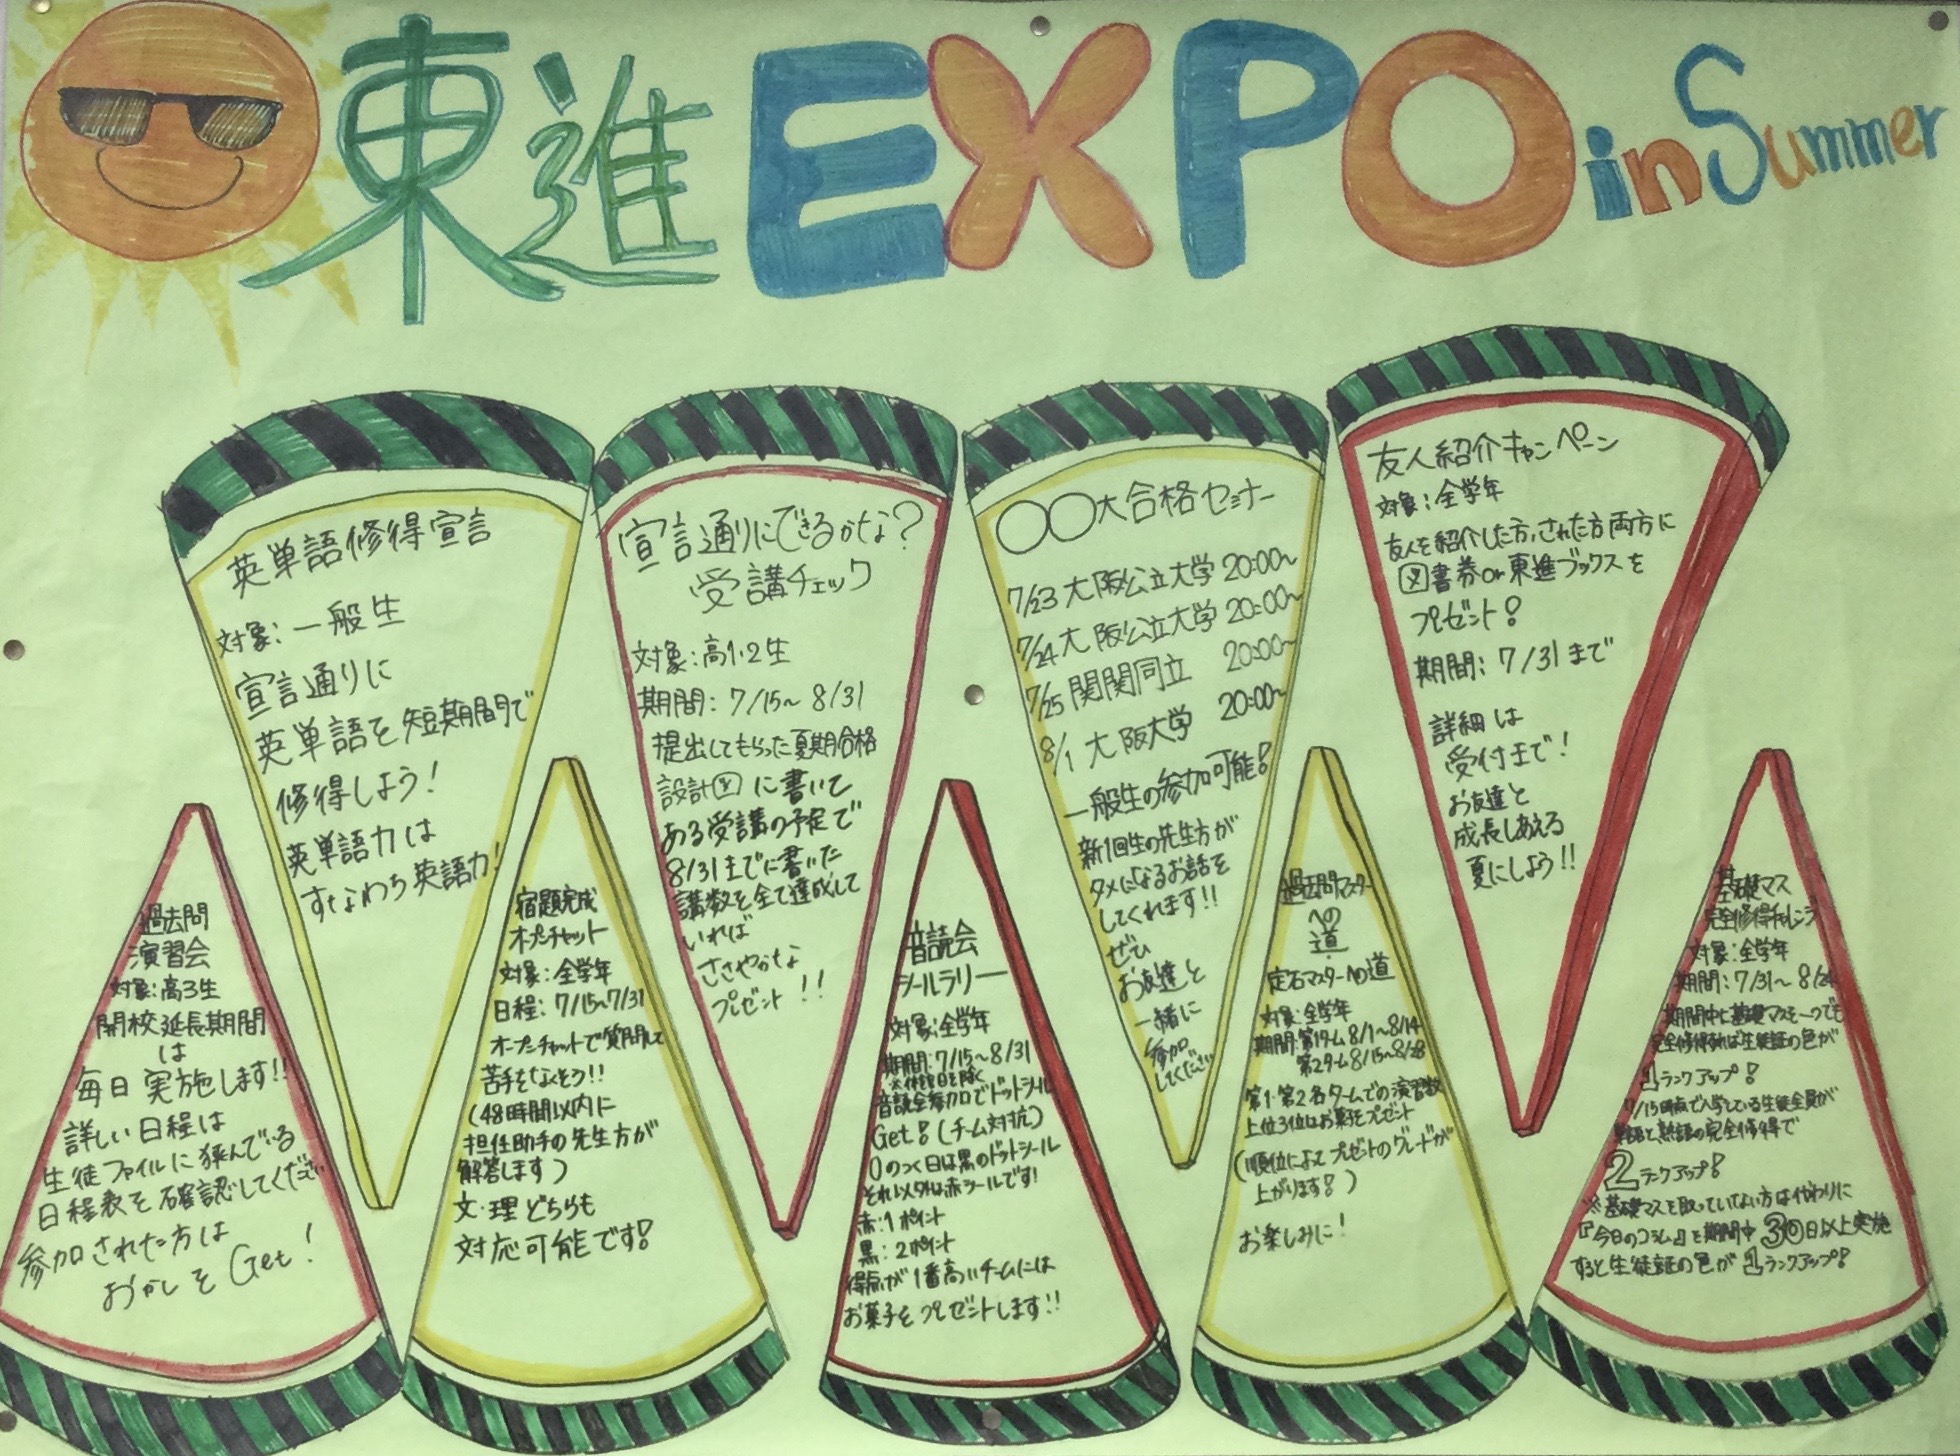 東進EXPO in Summer
英単語修得宣言
対象:一般生
宣言通りに
英単語を短期間で
修得しよう!
英単語力は
すなわち英語力!
宣言通りにできるかな?
受講チェック
対象:高1・2生
期間:7/15~8/31
提出してもらった夏期合格
設計図に書いて
ある受講の予定で
8/31までに書いた
講数を全て達成して
いれば
ささやかな
プレゼント!!
〇〇大合格セミナー
7/23大阪公立大学 20:00~
7/24大阪公立大学 20:00~
7/25関関同立 20:00~
8/1大阪大学 20:00~
一般生の参加可能!
新1回生の先生方が
タメになるお話を
してくれます!!
ぜひ
お友達と
一緒に
参加
してください!!
友人紹介キャンペーン
対象:全学年
友人を紹介した方,された方両方に
図書券or東進ブックスを
プレゼント!
期間:7/31まで
詳細は
受付まで!
お友達と
成長しあえる
夏にしよう!!
過去問
演習会
対象:高3生
開校延長期間
は
毎日実施します!!
詳しい日程は
生徒ファイルに挟んでいる
日程表を確認してください
参加された方は
おかしをGet!
宿題完成
オプンチャット
対象:全学年
日程:7/15~7/31
オープンチャットで質問して
苦手をなくそう!!
(48時間以内に
担任助手の先生方が
解答します)
文・理どちらも
対応可能です!
音読会
シールラリー
対象:全学年
期間:7/15~8/31
※休館日を除く
音読会参加でドットシール
Get!(チーム対抗)
0のつく日は黒のドットシール
それ以外は赤シールです!
赤:1ポイント
黒:2ポイント
得点が1番高いチームには
お菓子をプレゼントします!!
過去問マスター
への
道
定石マスターへの道
対象:全学年
期間:第1ターム8/1~8/14
第2ターム8/15~8/28
第1・第2各タームでの演習数
上位3位はお菓子プレゼント
(順位によってプレゼントのグレードが
上がります!)
お楽しみに!
基礎マス
完全修得チャレンジ
対象:全学年
期間:7/31~8/24
期間中に基礎マスを一つでも
完全修得すれば生徒証の色が
1ランクアップ!
7/15時点で入学している生徒全員が
単語と熟語の完全修得で
2ランクアップ!
※基礎マスを取っていてない方は代わりに
『今日のコラム』を期間中30日以上実施
すると生徒証の色が1ランクアップ!